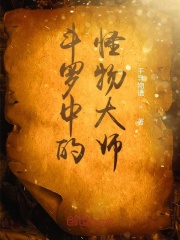 斗罗中的
怪物大师
著